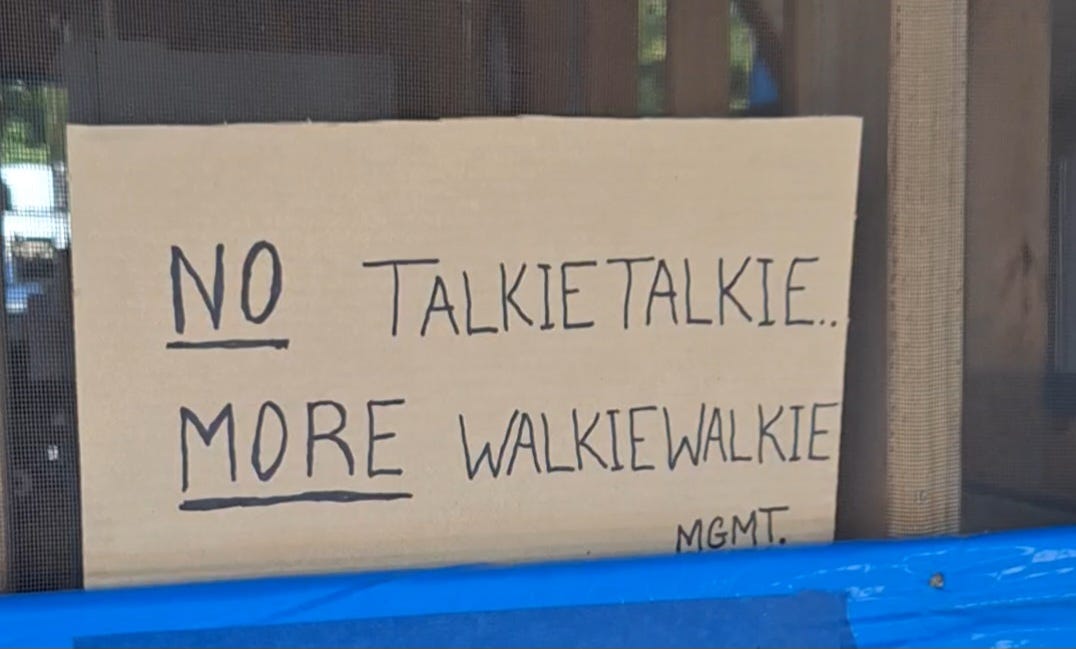 NO TALKIETALKIE..
MORE WALKIEWALKIE
MGMT.